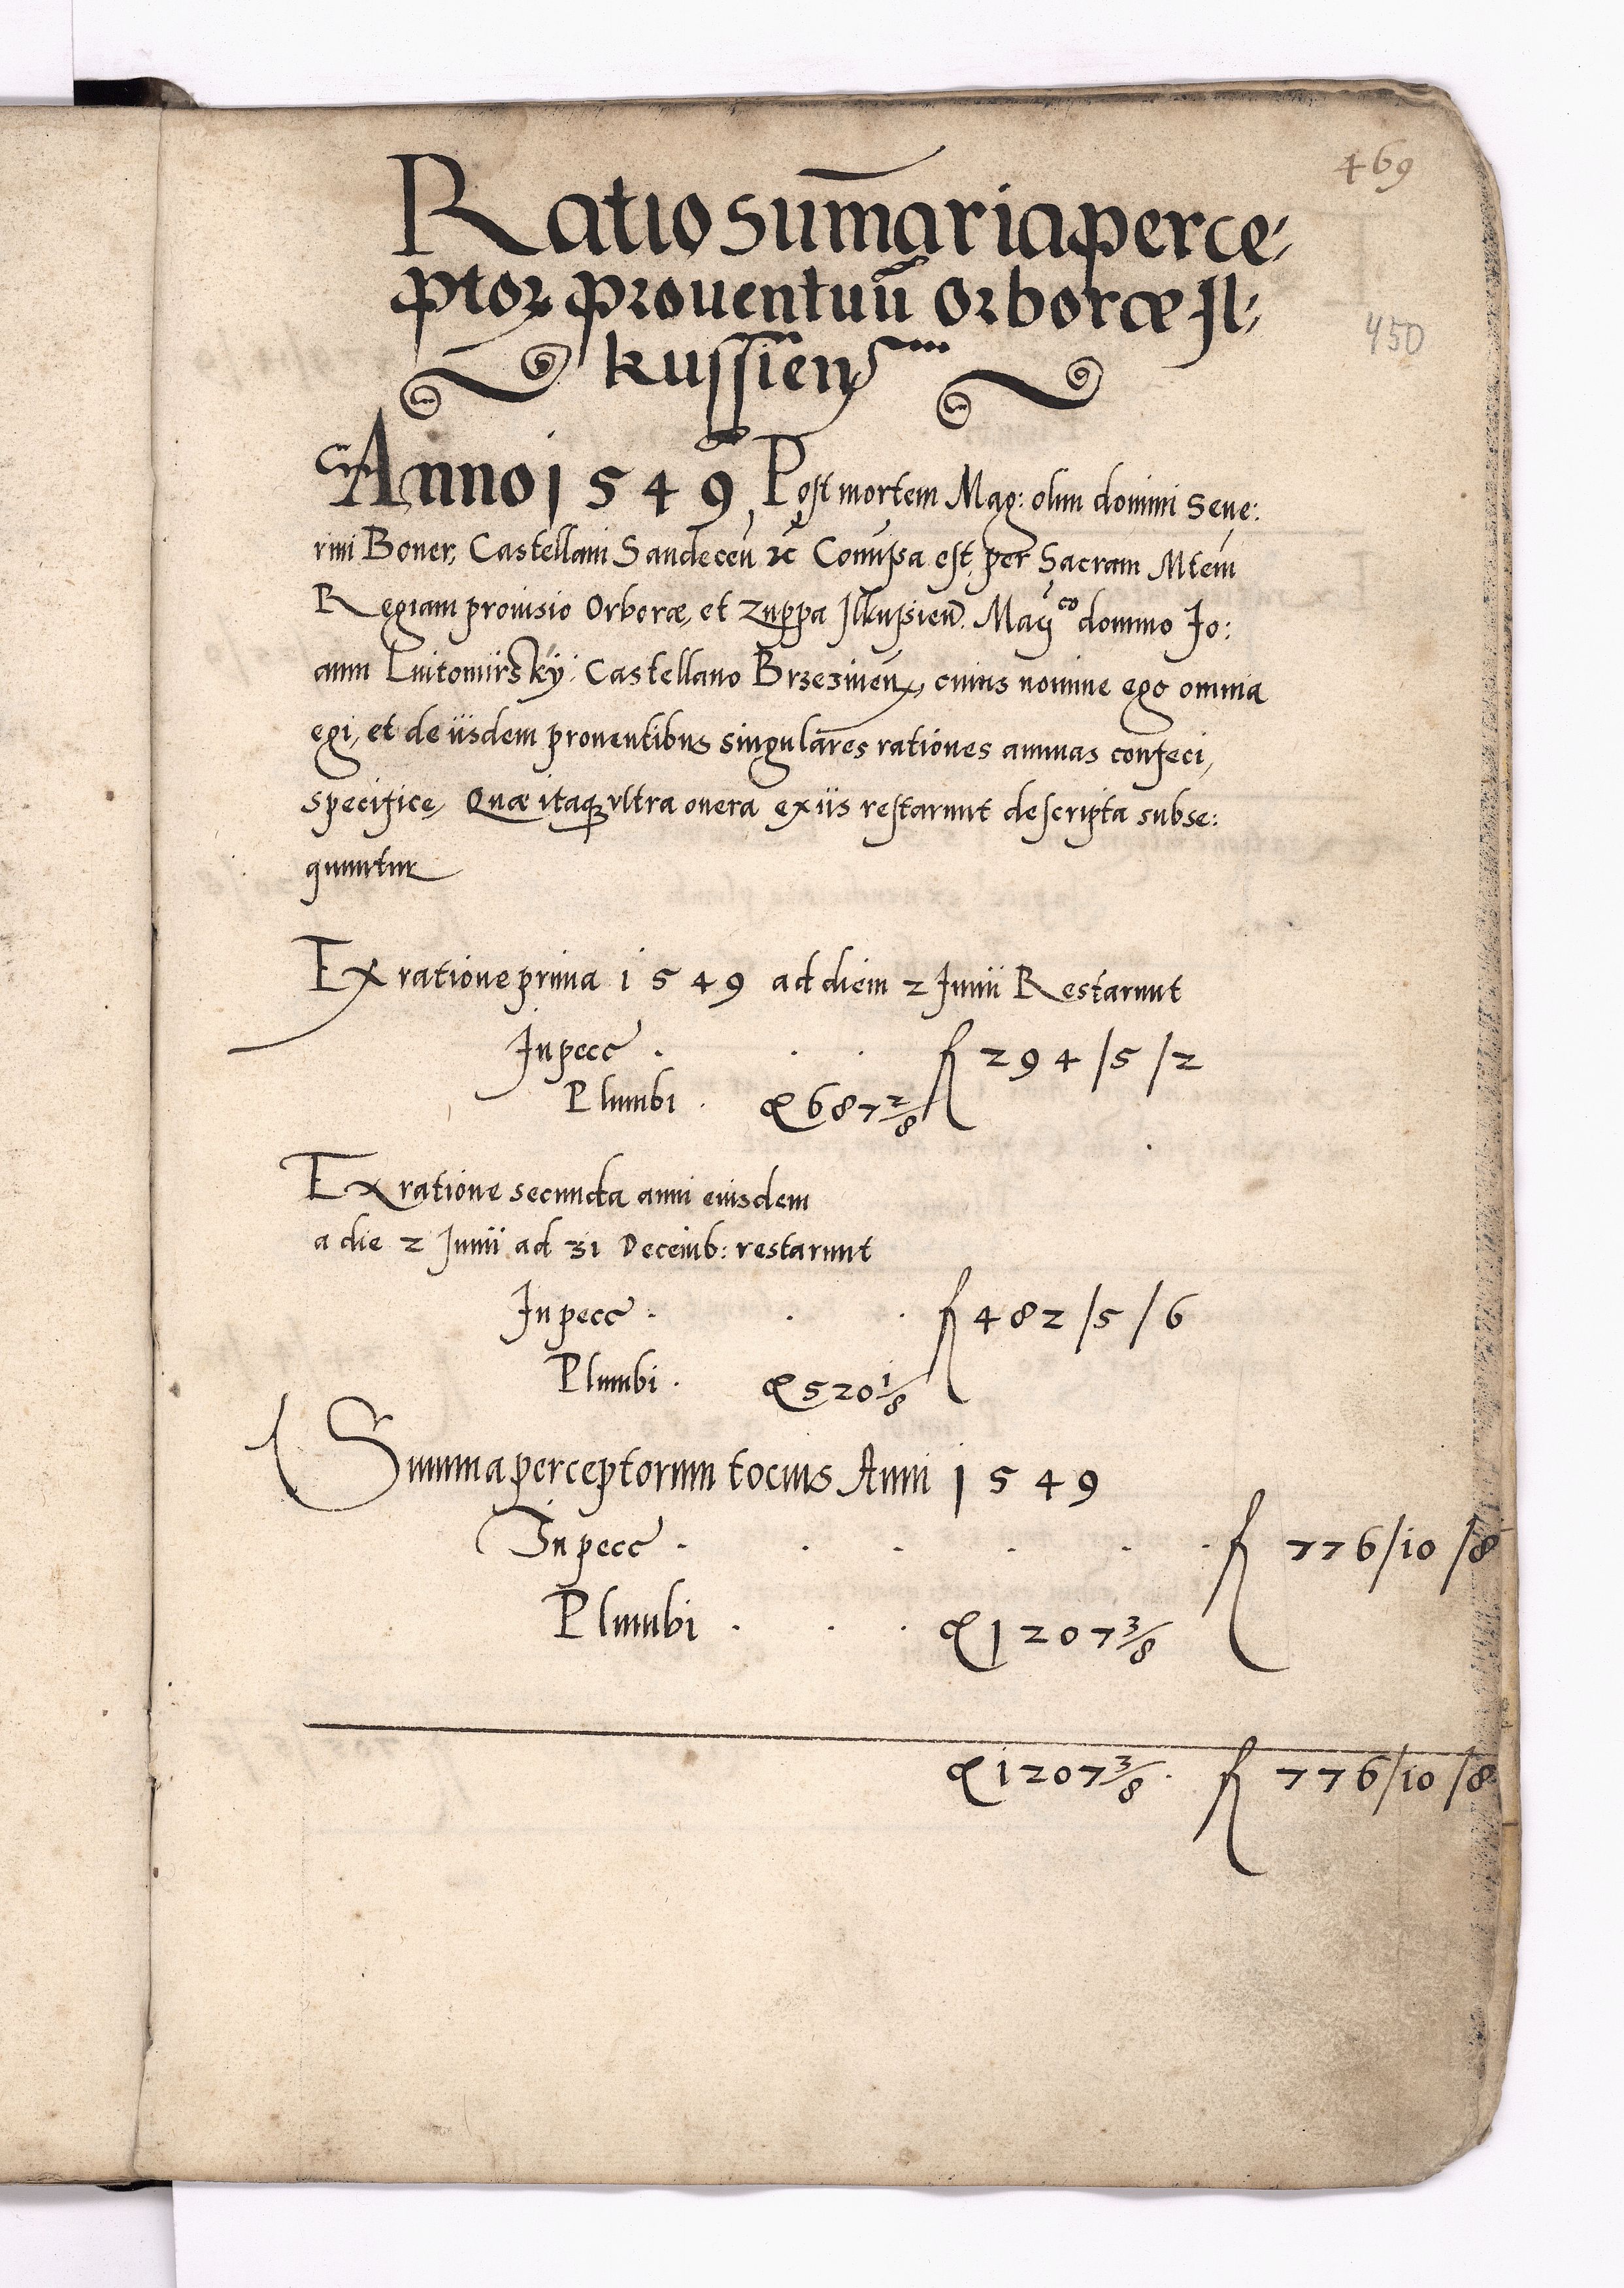 469
Ratio sum̃aria perce-
ptoꝝ prouentuũ Orboræ Il-
kussieñ
450
Anno 1549 Post mortem Mag: olim domini Seue:
rini Boner, Castellani Sandeceñ ⁊c̃ Com̃issa est per Sacram Mtem̃
Regiam prouisio Orboræ, et Zuppa Ilkussieñ. Mag᷑co domino Io:
anni Lutomirsky Castellano Brzezineñ, cuius nomine ego omnia
egi, et de iisdem prouentibus singulares rationes annuas confeci,
specifice, Quæ itaqꝫ vltra onera ex iis restarunt descripta subse:
quuntur
Ex ratione prima 1549 ad diem 2 Junii Restarunt
In pecc . . . fl 294/5/2
Plumbi . ꝗ 687 2/8
Ex ratione secunda anni eiusdem
a die 2 Junii ad 31 Decemb: restarunt
In pecc . . . fl 482/5/6
Plumbi . ꝗ 520 1/8
Summa perceptorum tocius Anni 1549
In pecc . . . . . . fl 776/10/8
Plumbi . . . ꝗ 1207 3/8
ꝗ 1207 3/8 . fl 776/10/8